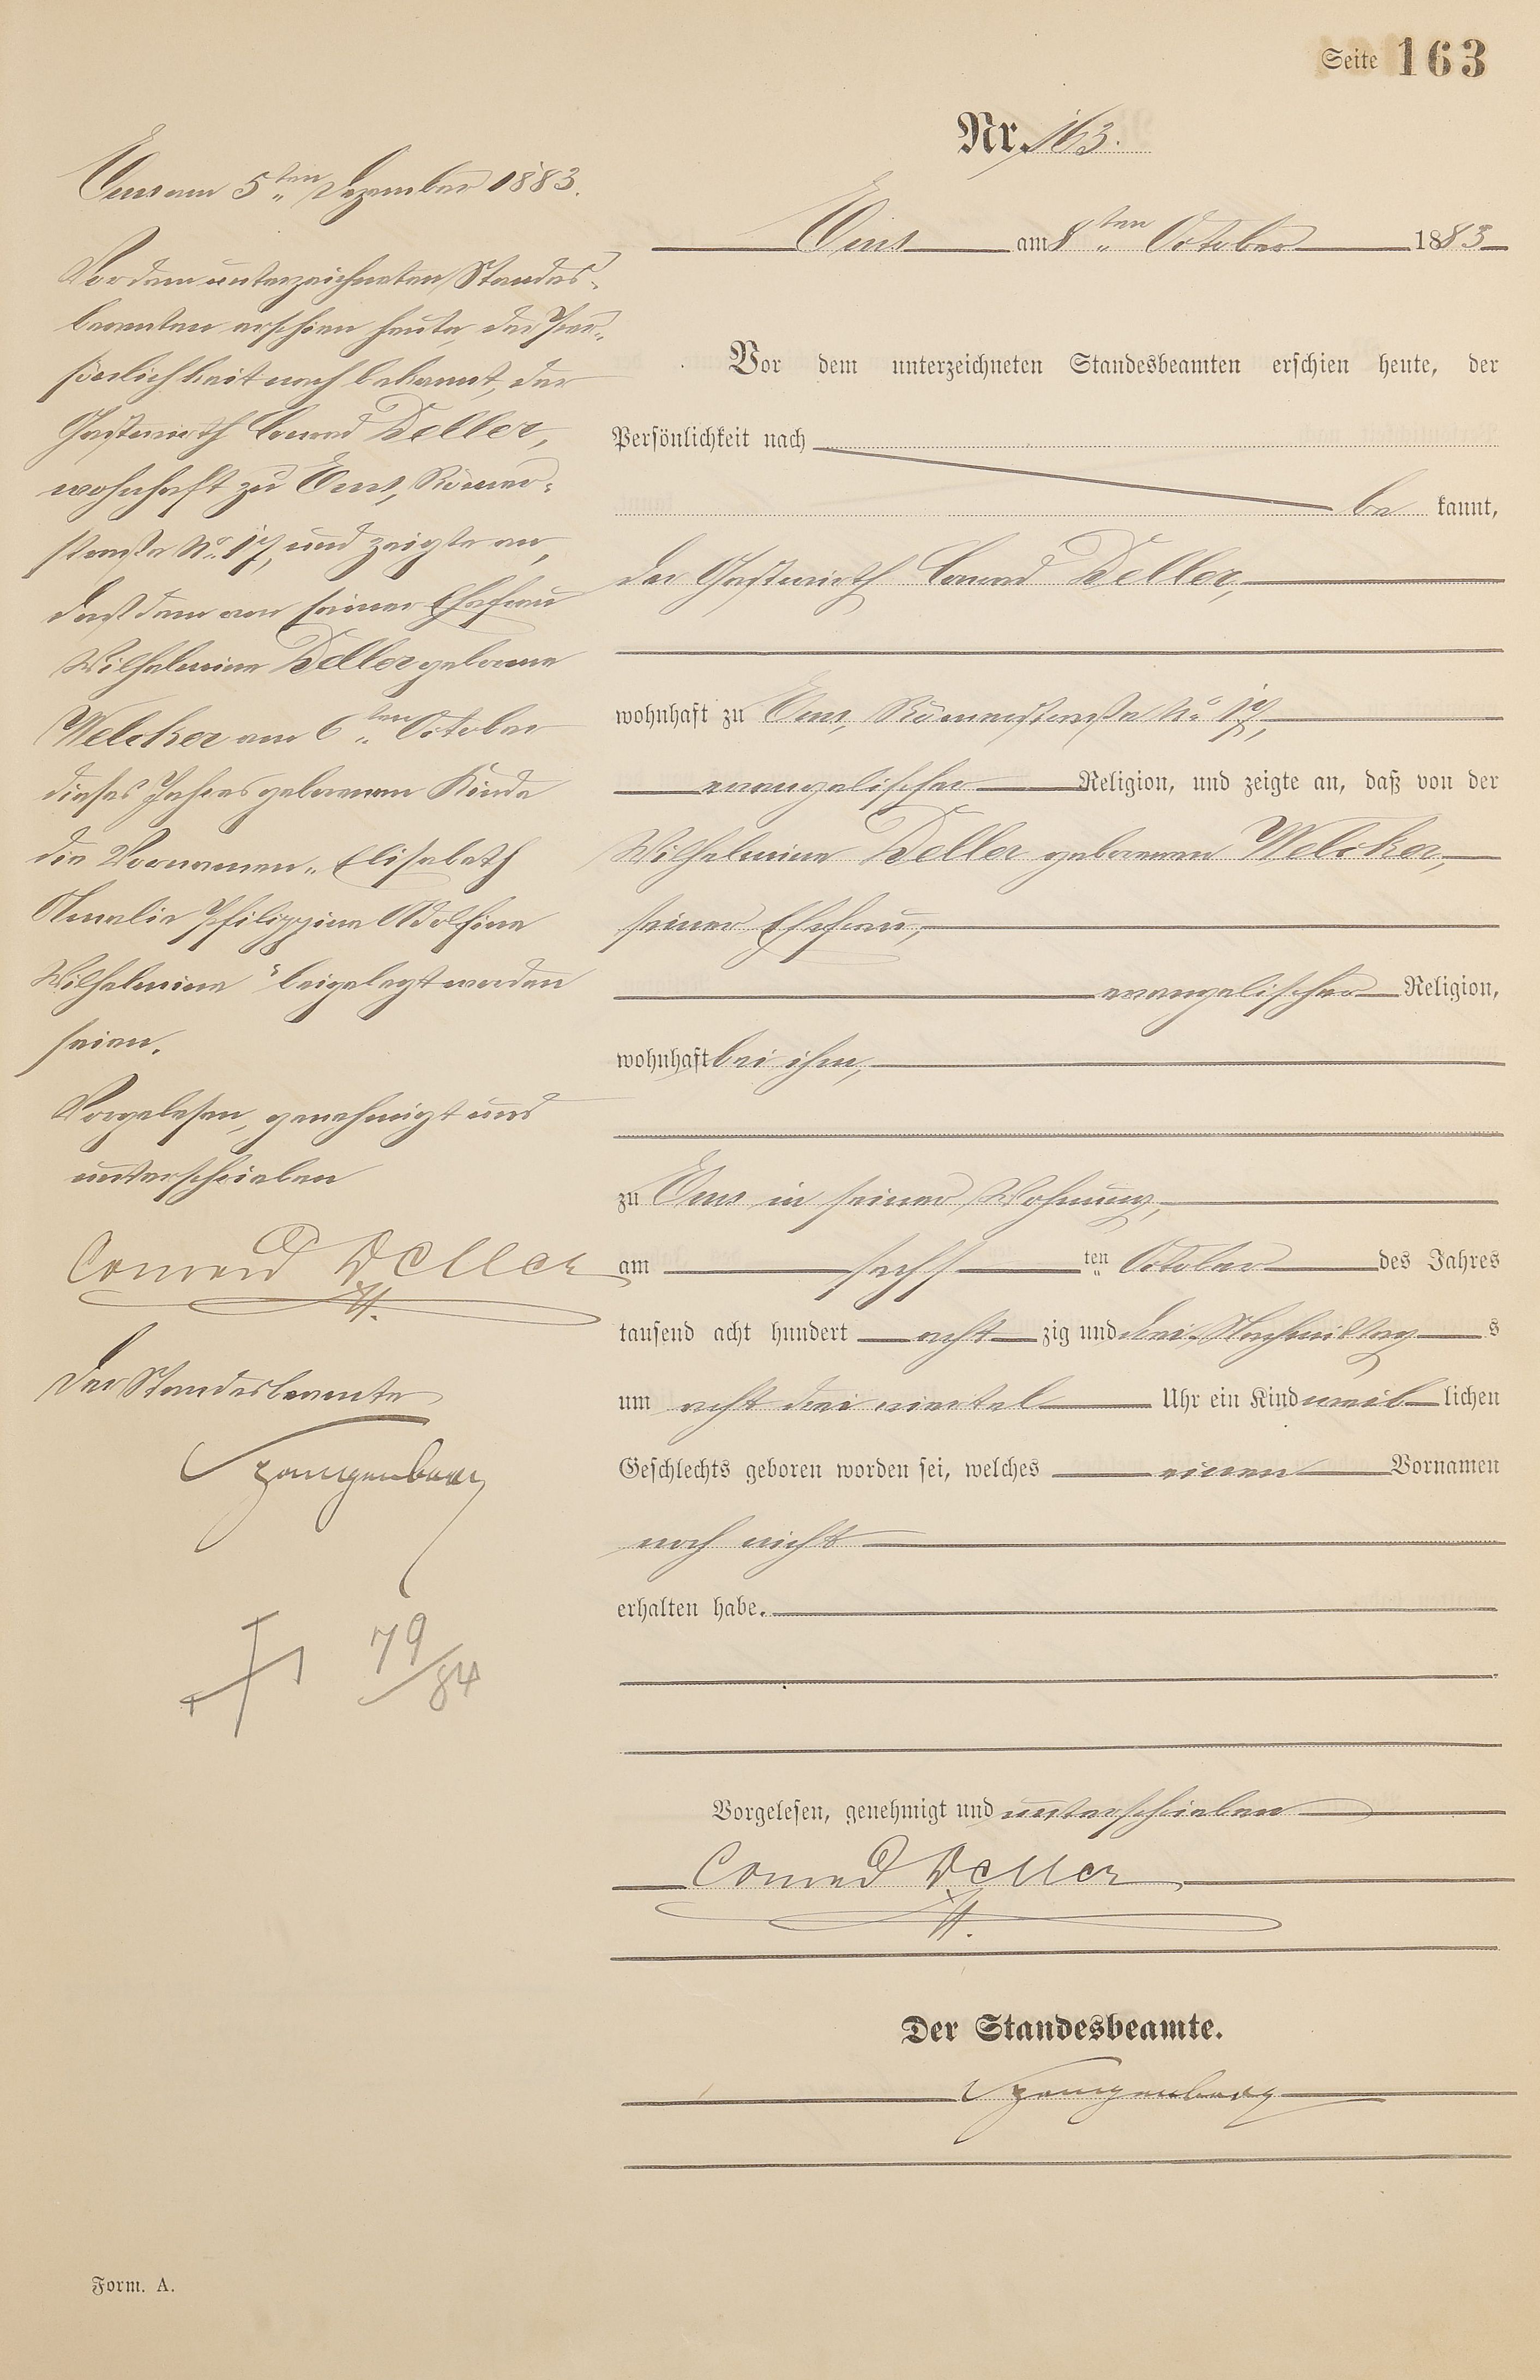 Seite 163
Nr. 163.
Ems am 8ten October 1883
Vor dem unterzeichneten Standesbeamten erschien heute, der
Persönlichkeit nach
be kannt,
der Gastwirth Conrad Deller,
wohnhaft zu Ems, Römerstraße No 17,
evangelischer Religion, und zeigte an, daß von der
Wilhelmine Deller geborenen Welcker,
seiner Ehefrau,
evangelischer Religion,
wohnhaft bei ihm,
zu Ems in seiner Wohnung,
am sechsten October des Jahres
tausend acht hundert acht zig und drei, Nachmittags
um acht drei viertel Uhr ein Kind weib lichen
Geschlechts geboren worden sei, welches einen Vornamen
noch nicht
erhalten habe.
Vorgelesen, genehmigt und unterschrieben
Conrad Deller
Der Standesbeamte.
Spangenberg
Ems am 5ten Dezember 1883.
Vor dem unterzeichneten Standes-
beamten erschien heute, der Per-
sönlichkeit nach bekannt, der
Gastwirth Conrad Deller,
wohnhaft zu Ems, Römer-
straße No 17, und zeigte an,
daß dem von seiner Ehefrau
Wilhelmine Deller geborene
Welcker am 6ten October
dieses Jahres geborenen Kinde
die Vornamen „Elisabeth
Amalie Philippine Adolfine
Wilhelmine“ beigelegt worden
seien.
Vorgelesen, genehmigt und
unterschrieben
Conrad Deller
Der Standesbeamte
Spangenberg
79/84
Form. A.